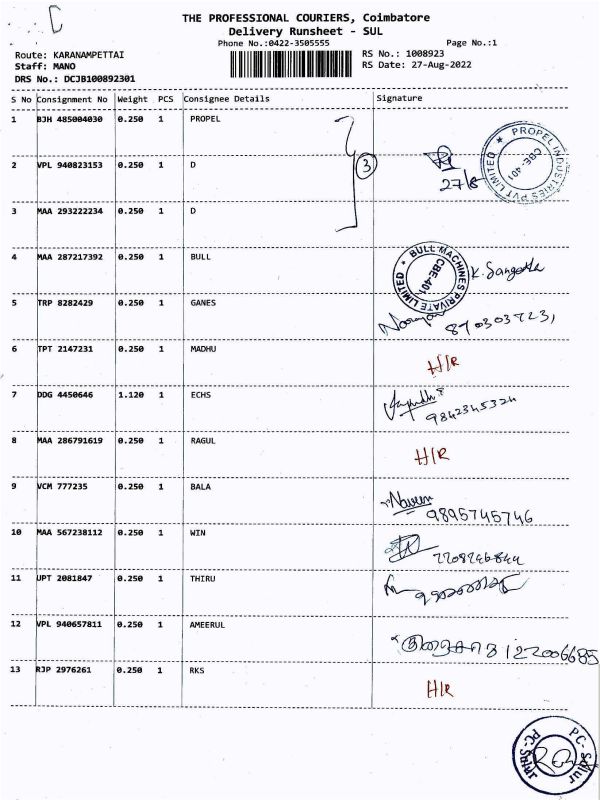 THE PROFESSIONAL COURIERS, Coimbatore
Delivery Runsheet - SUL
Phone No.:0422-3505555 Page No.:1
Route: KARANAMPETTAI RS No.: 1008923
Staff: MANO RS Date: 27-Aug-2022
DRS No.: DCJB100892301
S No Consignment No Weight PCS Consignee Details Signature
1 BJH 485004030 0.250 1 PROPEL
PROPEL INDUSTRIES PVT LIMITED ★
CBE-401
2 VPL 940823153 0.250 1 D
3
27/8
3 MAA 293222234 0.250 1 D
4 MAA 287217392 0.250 1 BULL
BULL MACHINES PRIVATE LIMITED ★
CBE-401
K. Sangeetha
5 TRP 8282429 0.250 1 GANES
Narayan
6 TPT 2147231 0.250 1 MADHU
H/R
7 DDG 4450646 1.120 1 ECHS
9842345324
8 MAA 286791619 0.250 1 RAGUL
H/R
9 VCM 777235 0.250 1 BALA
Naveen
9895745746
10 MAA 567238112 0.250 1 WIN
11 UPT 2081847 0.250 1 THIRU
12 VPL 940657811 0.250 1 AMEERUL
13 RJP 2976261 0.250 1 RKS
H/R
PC-Sulur
PC-Sulur